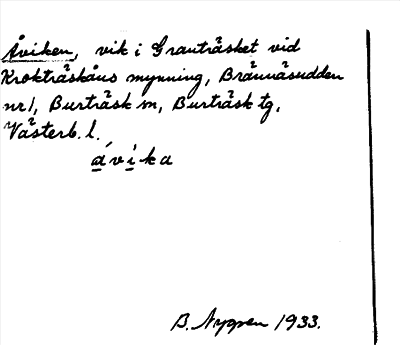 Åviken, vik i Granträsket vid
Krokträskåns mynning, Brännäsudden
nr 1, Burträsk sn, Burträsk tg,
Västerb. l.
a̲´vi̲`ka
B. Nygren 1933.